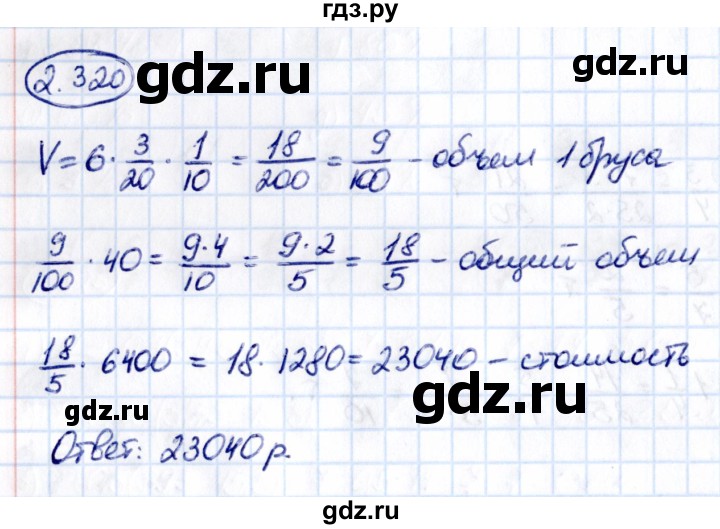 гдз.ру
2.320
gdz.ru
gdz.ru
V = 6 · 3/20 · 1/10 = 18/200 = 9/100 – объем 1 бруса
9/100 · 40 = 9·4/10 = 9·2/5 = 18/5 – общий объем
18/5 · 6400 = 18 · 1280 = 23040 – стоимость
gdz.ru
gdz.ru
Ответ: 23040 р.
gdz.ru